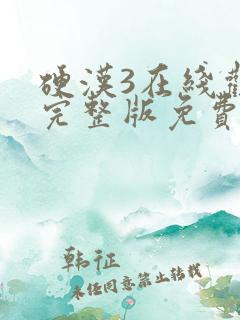 硬漢3在綫
完整版免費
韩征
未经同意禁止转载